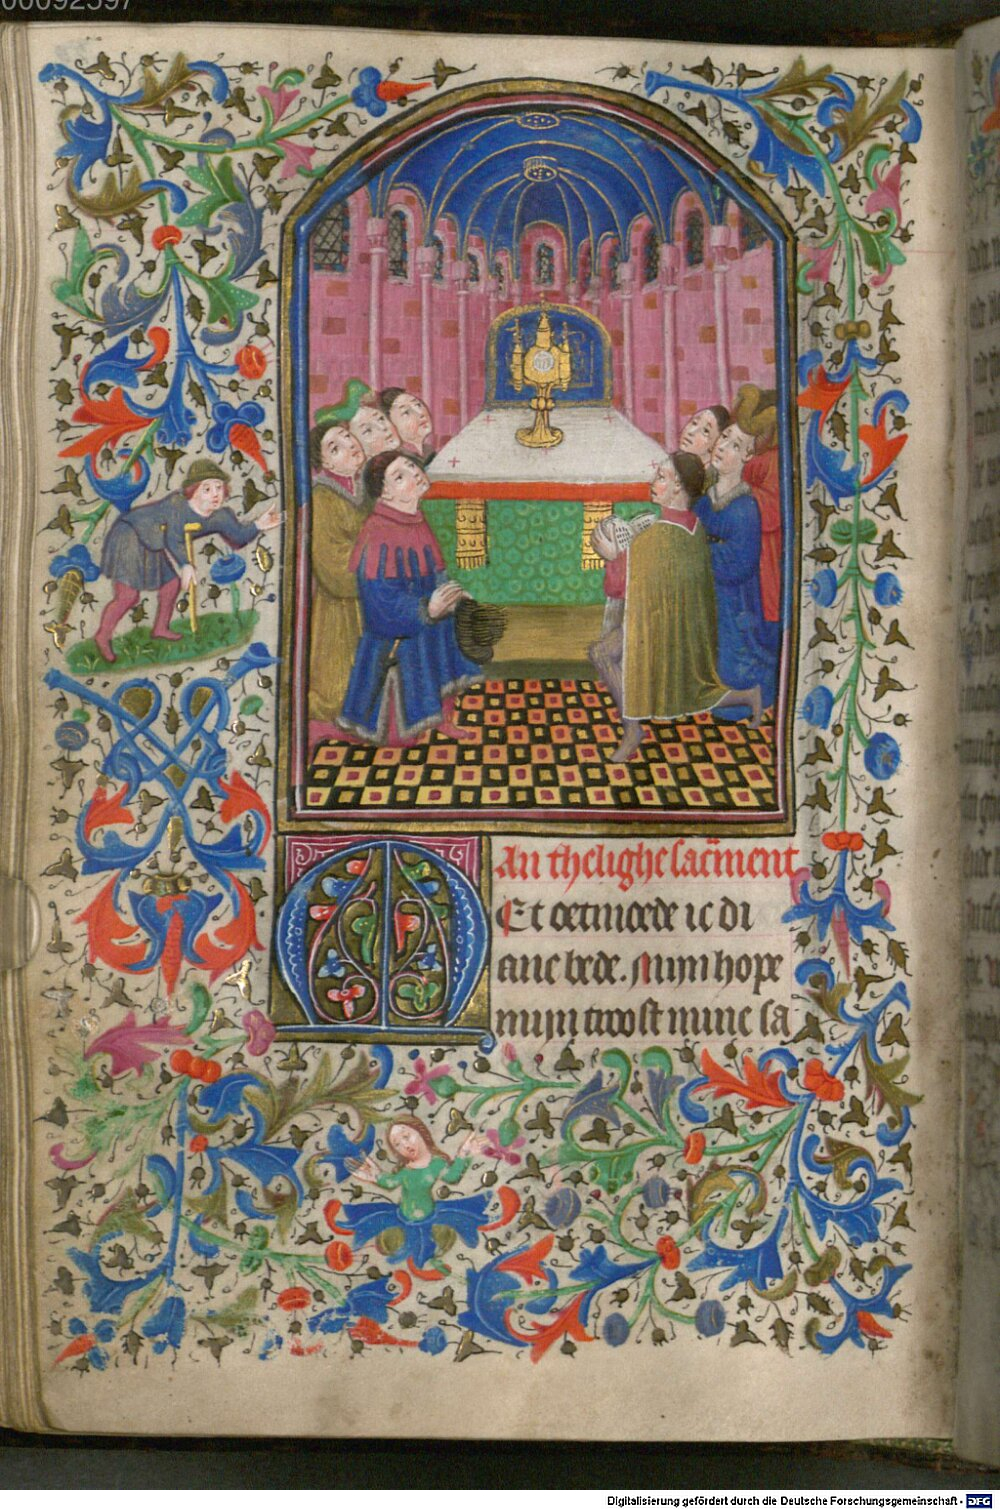 00092397
An thelighe sacrment
Met oetmoede ic di
aue bede. Mijn hope
mijn troost mine sa
Digitalisierung gefördert durch die Deutsche Forschungsgemeinschaft - DFG